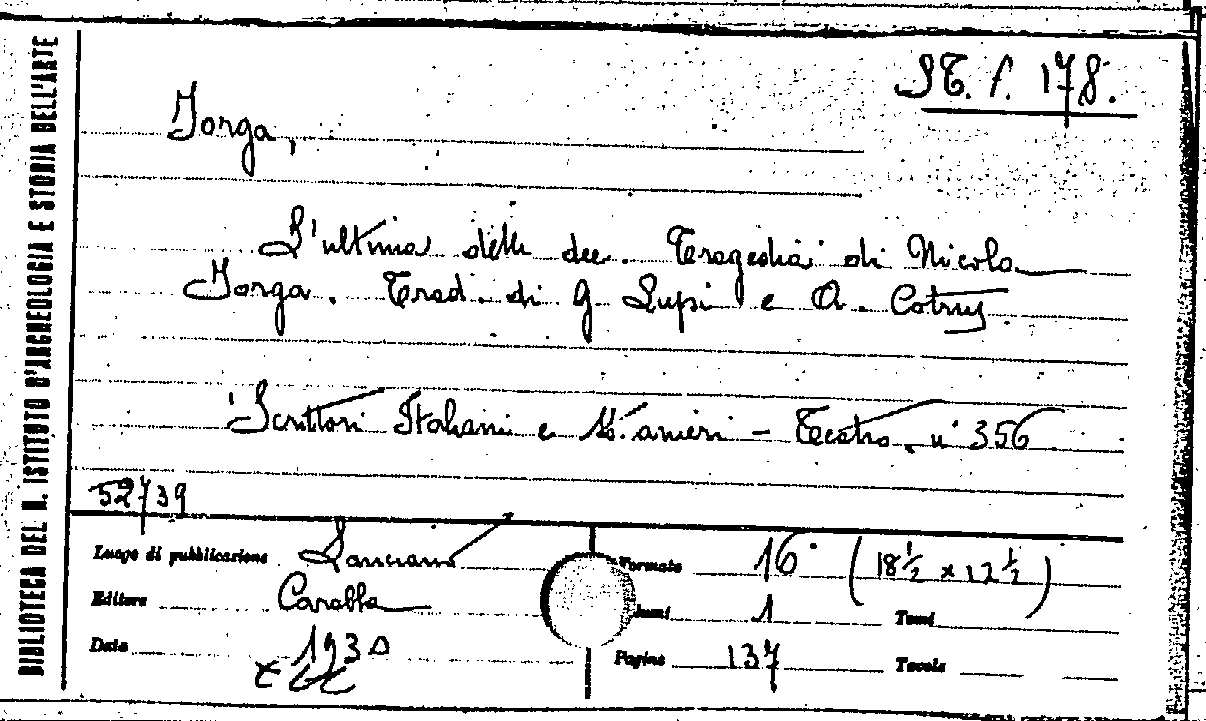 BIBLIOTECA DEL R. ISTITUTO D'ARCHEOLOGIA E STORIA DELL'ARTE
178.
Jorga,
L'ultima delle dee. Tragedia di Nicola
Jorga. Trad. di G. Lupi e A. Cotruş.
Scrittori Italiani e Stranieri - Teatro, n° 356
52739
Luogo di pubblicazione Lanciano
Formato 16° (18½ x 12½)
Editore Carabba
1
Tomi
Data 1930
Pagine 137
Tavole